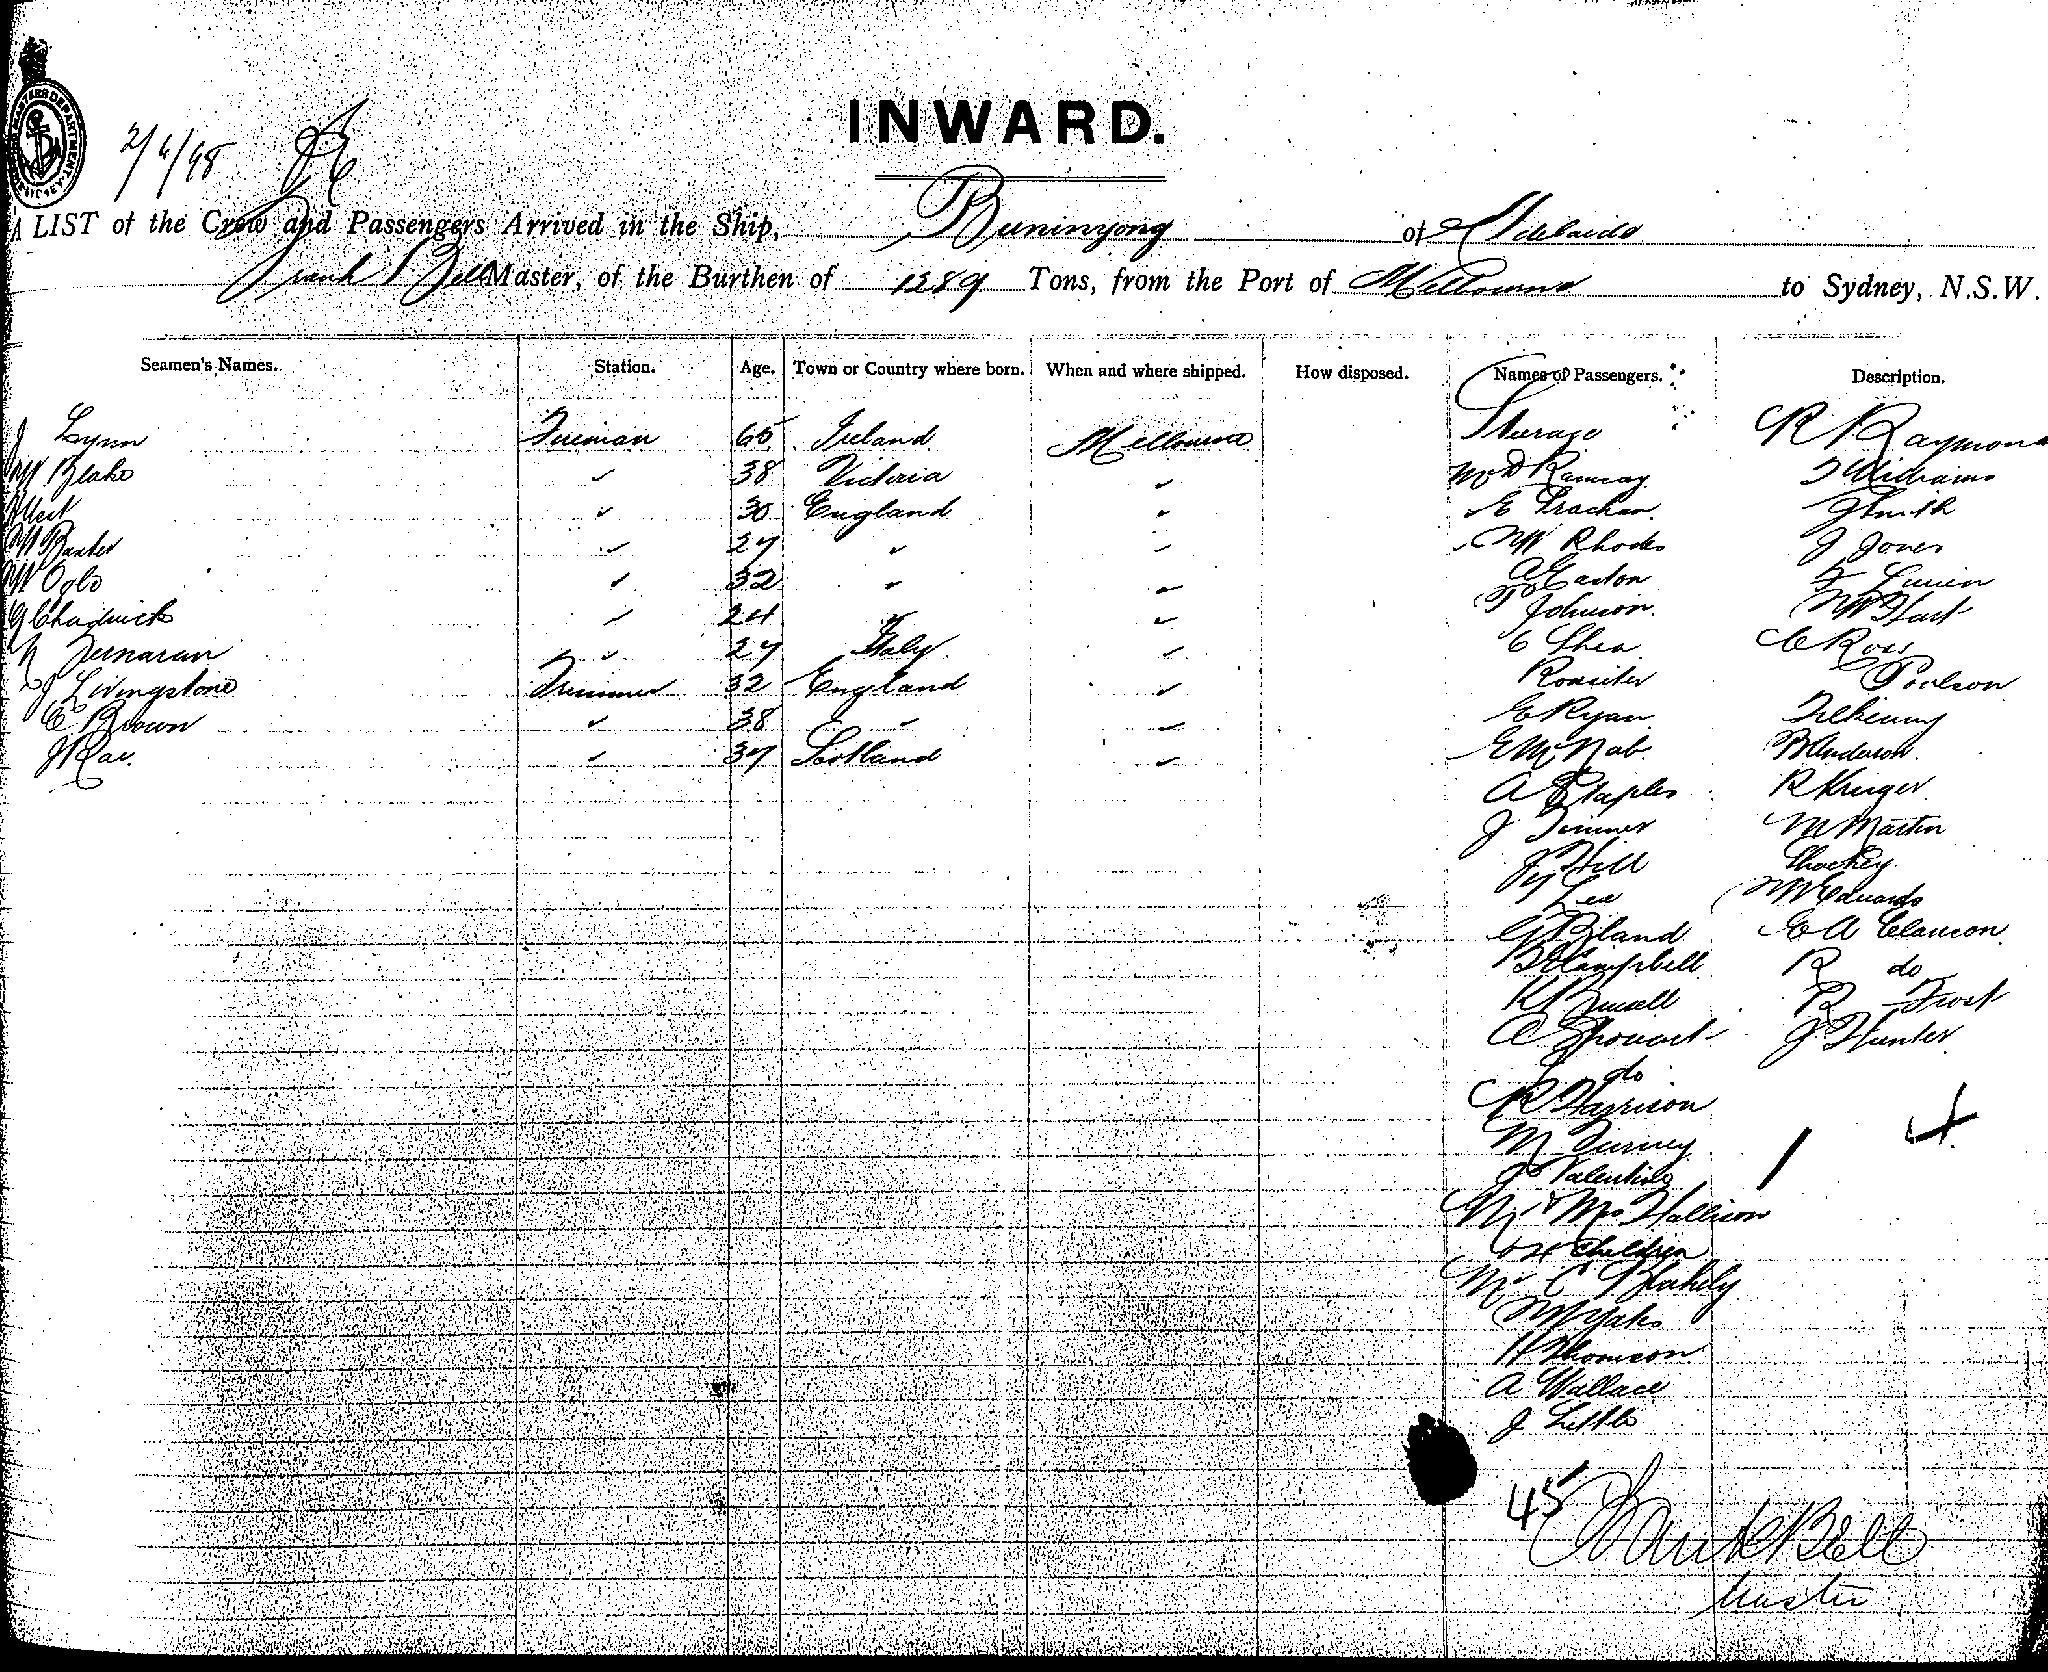 INWARD.
2/6/98
A LIST of the Crew and Passengers Arrived in the Ship, Buninyong of Adelaide
Frank Bell Master, of the Burthen of 1289 Tons, from the Port of Melbourne to Sydney, N.S.W.
Seamen's Names. Station. Age. Town or Country where born. When and where shipped. How disposed. Names of Passengers. Description.
J Lynn Fireman 65 Ireland Melbourne Steerage R Raymond
W Blake " 38 Victoria " Mr D Ramsay T Williams
West " 30 England " E Strachan J Smith
W Baxter " 27 " " W Rhodes J Jones
W Oglo " 32 " " A Easton
G Chadwick " 24 " " T Johnson W Hart
" 27 Italy " C Shea C Ross
J Livingstone Trimmer 32 England " Rossiter C Poulson
C Brown " 38 " " E Ryan Tilkenny
J Rae. " 37 Scotland " E McNab B Anderson
A Staples R Kruger
J Timmer M Martin
J Hill Shockey
Lee W Edwards
G Bland E A Clauson
B Campbell R do
R Frost
J Hunter
do
R Harrison
M Turney
J Valentine
Mr & Mrs Hallison
& children
Mr C Blakely
W Yates
H Thomson
A Wallace
J Little
45
Frank Bell
Master